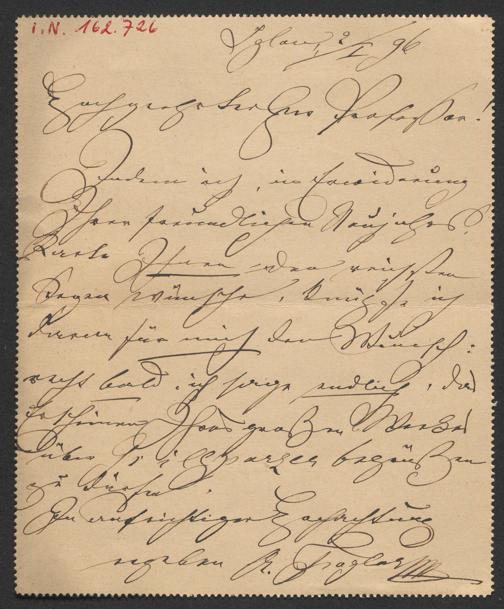 I.N. 162.726
Iglau, 2/I 96
Hochgeehrter Herr Professor!
Indem ich, in Erwiderung
Ihrer freundlichen Neujahrs-
karte Ihnen den reichsten
Segen wünsche, knüpfe ich
daran für mich den Wunsch:
recht bald, ich sage endlich, das
Erscheinen Ihres großen Werkes
über Grillparzer begrüßen
zu dürfen.
In aufrichtiger Hochachtung
ergeben